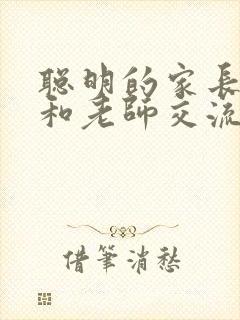 聰明的家長
和老師交流
借筆消愁